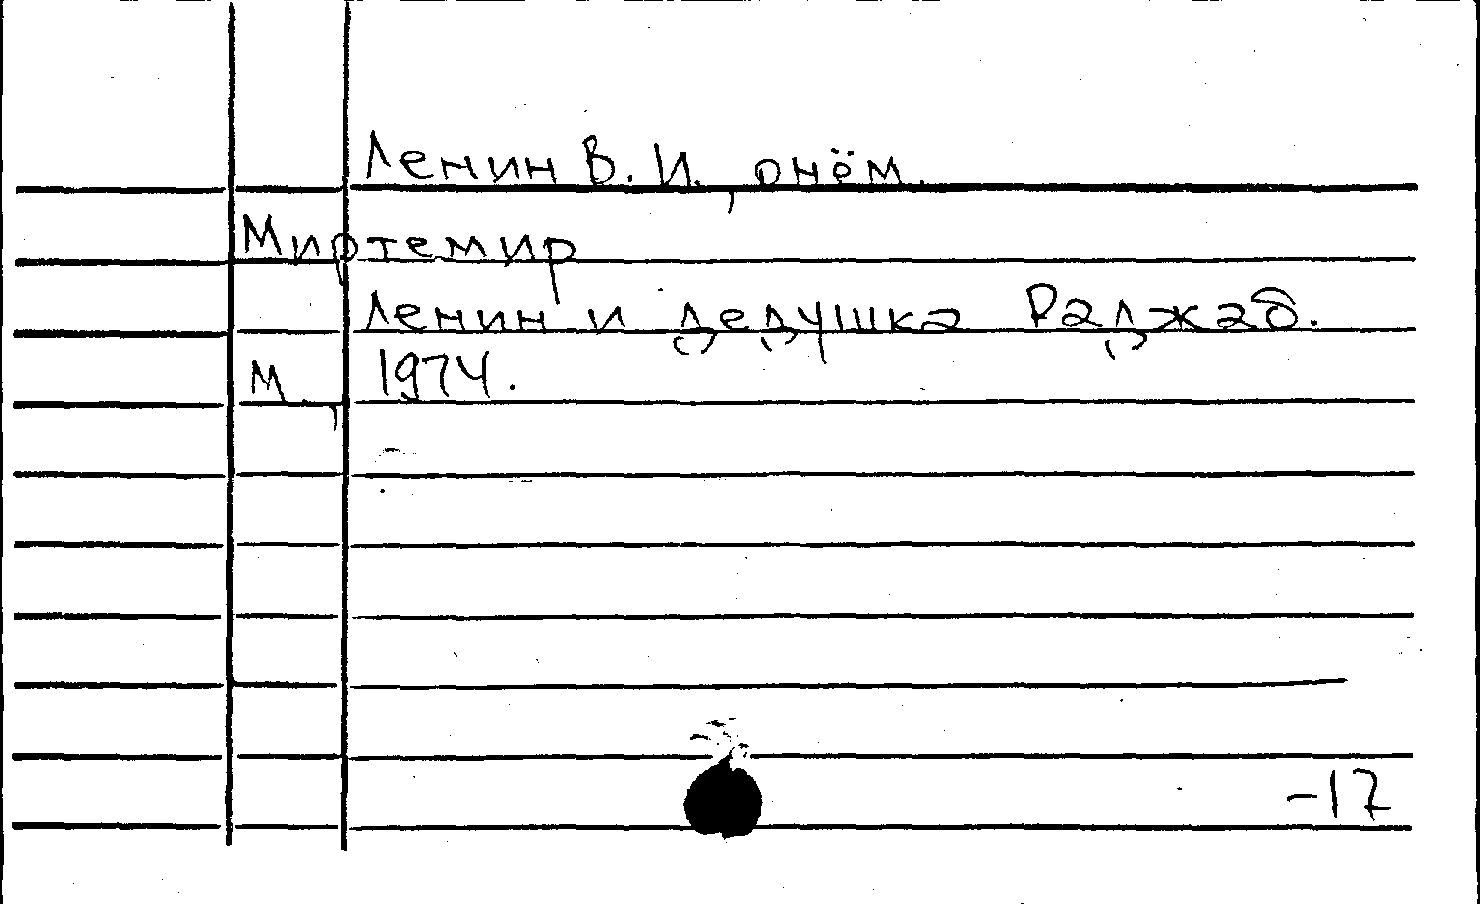 Ленин В. И., о нём.
Миртемир
Ленин и дедушка Раджаб.
М., 1974.
-17